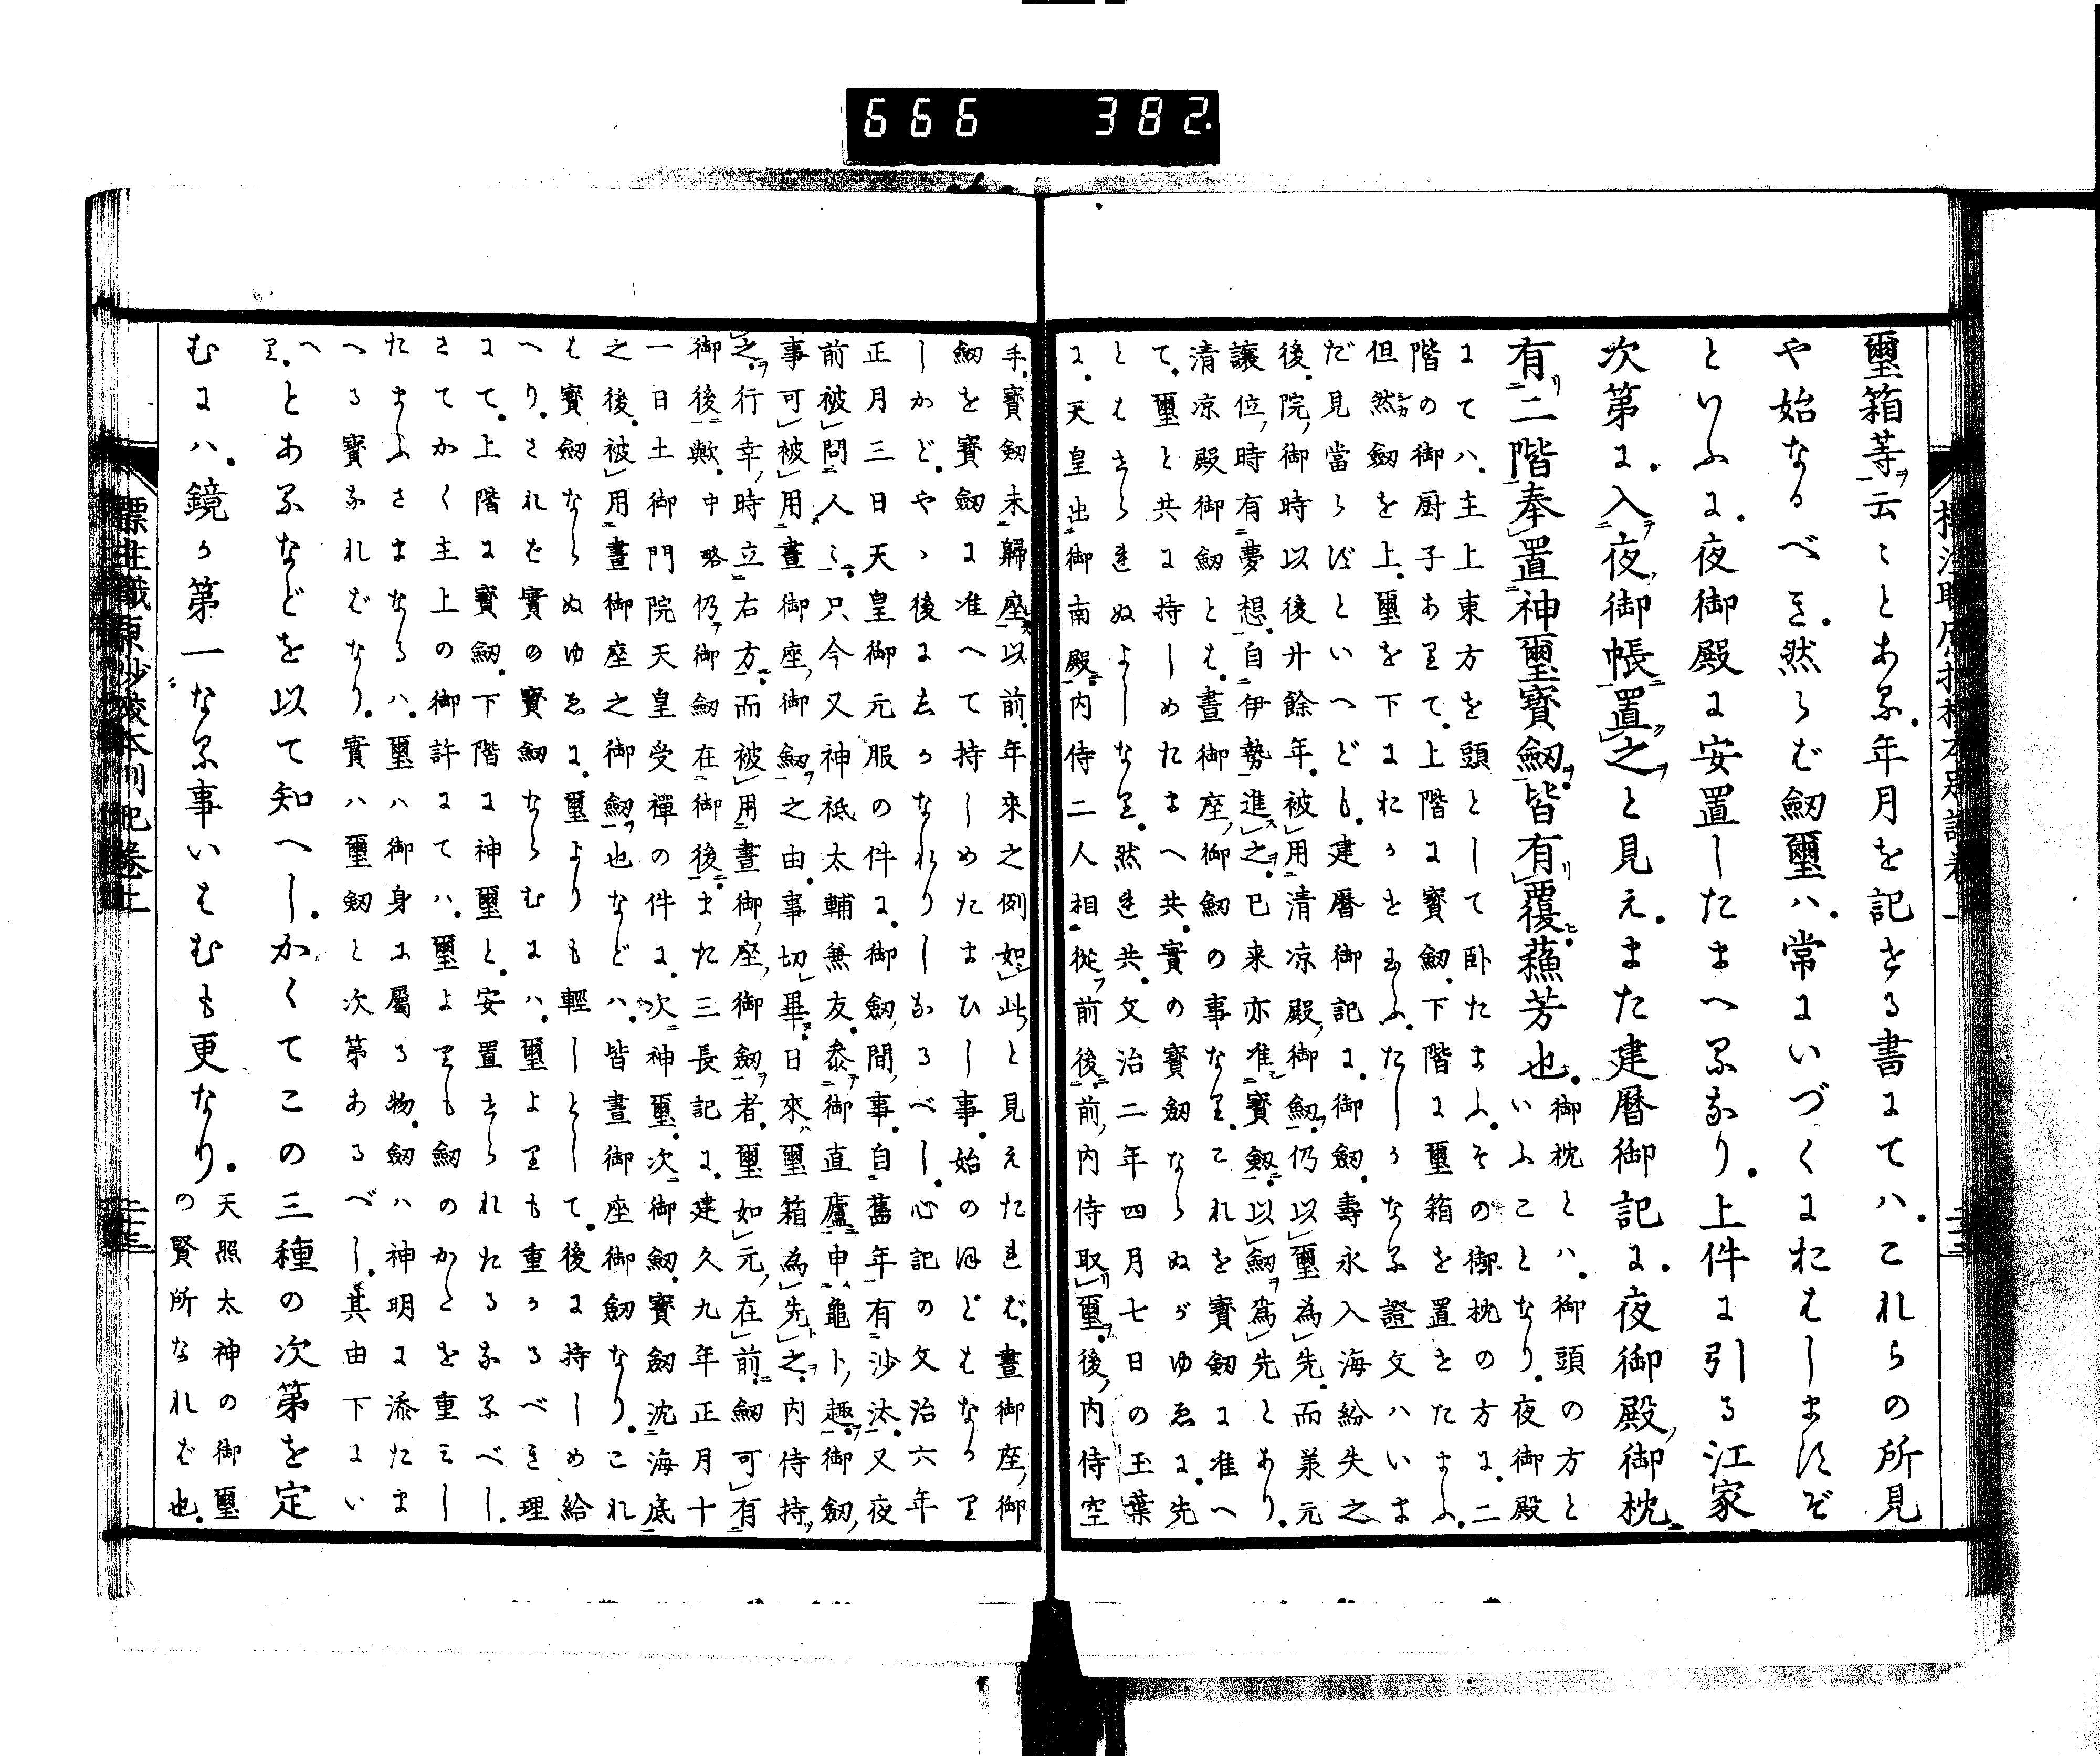 666 382.
璽箱等ヲ云〻とある。年月を記せる書にてハ。これらの所見
や始なるべき。然らバ劔璽ハ。常にいづくにおはしますぞ
といふに。夜御殿に安置したまへるなり。上件に引る江家
次第に。入夜御帳置之と見え。また建暦御記に。夜御殿御枕
有二階奉置神璽寶劔皆有覆蘓芳也。
御枕とハ。御頭の方と
いふことなり。夜御殿
にてハ。主上東方を頭として臥たまふ。その御枕の方に。二
階の御厨子ありて。上階に寶劔。下階に璽箱を置たまふ。
但然劔を上。璽を下におかせたまふ。たしかなる證文ハいま
だ見當らずといへども。建暦御記に。御劔壽永入海紛失之
後。院御時以後廿餘年。被用清凉殿御劔仍以璽為先。而兼元
讓位時有夢想。自伊勢進之。已来亦准寶劔以劔為先とあり。
清凉殿御劔とは。晝御座御劔の事なり。これを寶劔に准へ
て。璽と共に持しめたまへ共。實の寶劔ならぬがゆゑに。先
とはせられぬよしなり。然れ共。文治二年四月七日の玉葉
に。天皇出御南殿。内侍二人相從前後。前内侍取璽。後内侍空
手。寶劔未歸座以前。年來之例如此と見えたれば。晝御座御
劔を寶劔に准へて持しめたまひし事。始のほどはなかり
しかど。やゝ後にはしかなれりしなるべし。心記の文治六年
正月三日天皇御元服の件に。御劔間事。自舊年有沙汰。又夜
前被問人〻。只今又神祗太輔兼友。泰御直廬申龜卜趣。御劔
事可被用晝御座御劔之由。事切畢。日來璽箱為先之。内侍持
之。行幸時立右方。而被用晝御座御劔者。璽如元在前。劔可有
御後歟。中略仍御劔在御後。また三長記に。建久九年正月十
一日土御門院天皇受禪の件に。次神璽。次御劔。寶劔沈海底
之後。被用晝御座之御劔也などハ。皆晝御座御劔なり。これ
は寶劔ならぬゆゑに。璽よりも輕しとして。後に持しめ給
へり。されど實の寶劔ならむにハ。璽よりも重かるべき理
にて。上階に寶劔。下階に神璽と。安置せられたるなるべし。
さてかく主上の御許にてハ。璽よりも劔のかたを重みし
たまふさまなるハ。璽ハ御身に屬る物。劔ハ神明に添たま
へる寶なれバなり。實ハ璽劔と次第あるべし。其由下にい
へり。
とあるなどを以て知へし。かくてこの三種の次第を定
むにハ。鏡か第一なる事いはむも更なり。
天照太神の御璽
の賢所なれば也。